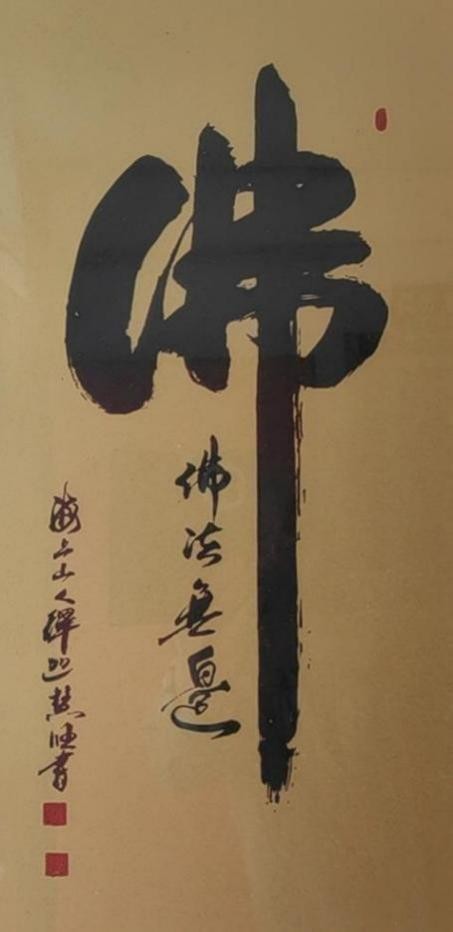 佛
佛法無邊
海上山人釋迦慧陀書